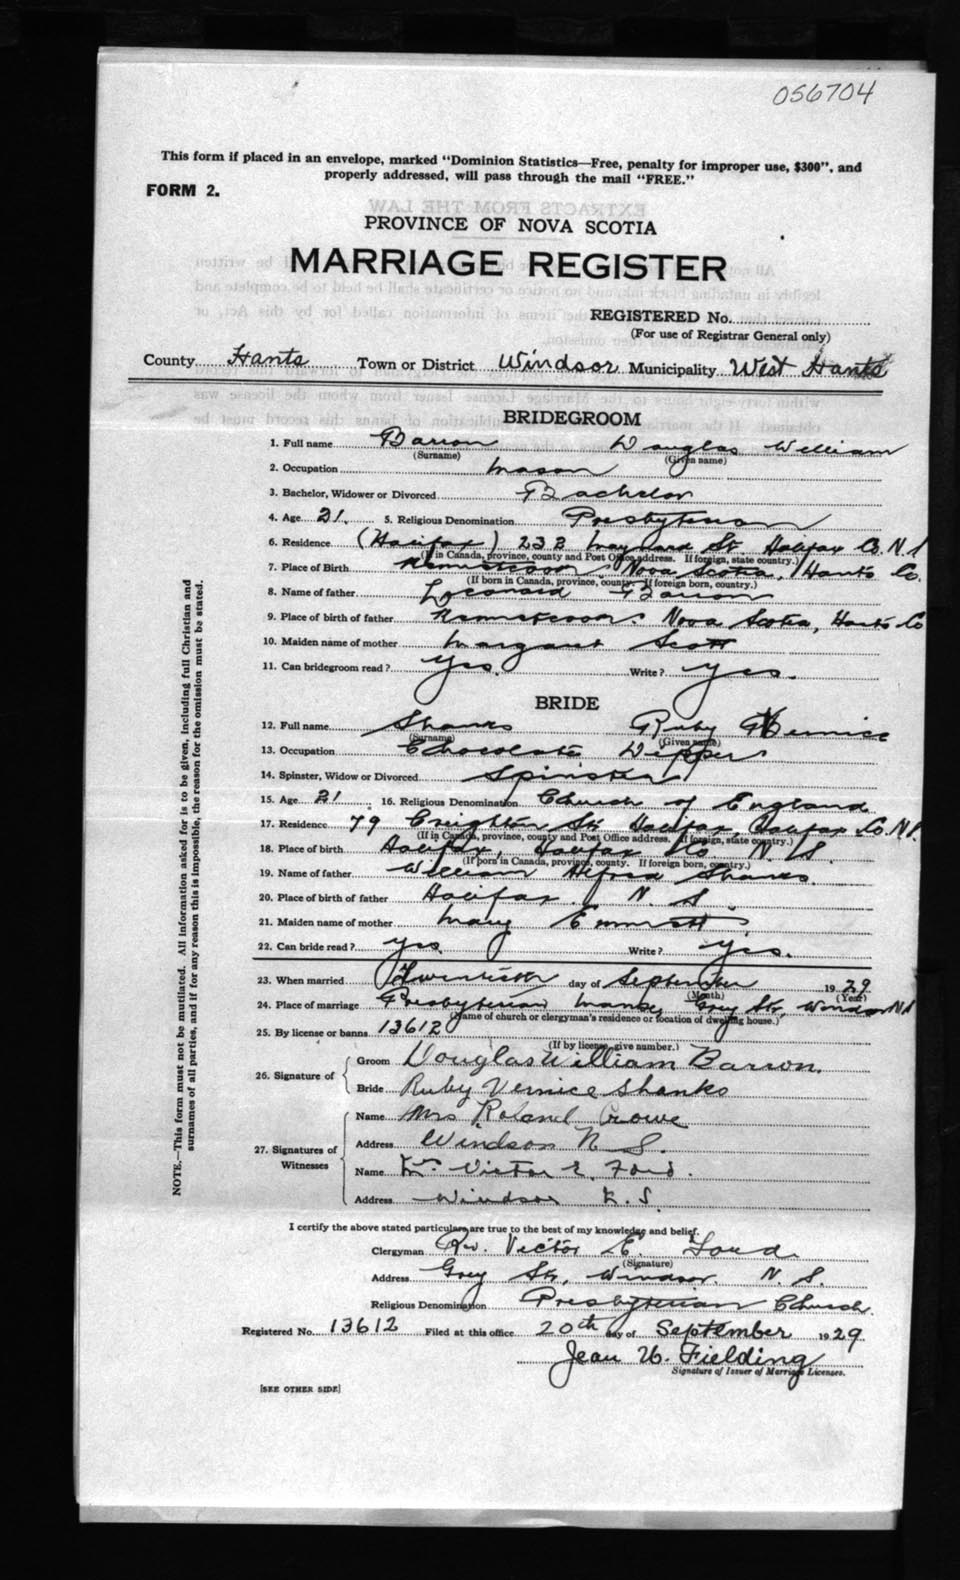 056704
This form if placed in an envelope, marked "Dominion Statistics—Free, penalty for improper use, $300", and
properly addressed, will pass through the mail "FREE."
FORM 2.
EXTRACTS FROM THE LAW
PROVINCE OF NOVA SCOTIA
MARRIAGE REGISTER
REGISTERED No.
(For use of Registrar General only)
County Hants Town or District Windsor Municipality West Hants
BRIDEGROOM
1. Full name Barron Douglas William
(Surname) (Given name)
2. Occupation Mason
3. Bachelor, Widower or Divorced Bachelor
4. Age 21. 5. Religious Denomination Presbyterian
6. Residence (Halifax) 238 Maynard St. Halifax Co. N.S
(If in Canada, province, county and Post Office address. If foreign, state country.)
7. Place of Birth Nova Scotia, Hants Co.
(If born in Canada, province, county. If foreign born, country.)
8. Name of father Leonard Barron
9. Place of birth of father Nova Scotia, Hants Co
10. Maiden name of mother Margaret Scott
11. Can bridegroom read? Yes. Write? Yes.
BRIDE
12. Full name Shanks Ruby Vernice
(Surname) (Given name)
13. Occupation Chocolate Dipper
14. Spinster, Widow or Divorced Spinster
15. Age 21. 16. Religious Denomination Church of England
17. Residence 79 Creighton St. Halifax, Halifax Co. N.S.
(If in Canada, province, county and Post Office address. If foreign, state country.)
18. Place of birth Halifax, Halifax Co N. S.
(If born in Canada, province, county. If foreign born, country.)
19. Name of father William Alfred Shanks.
20. Place of birth of father Halifax. N. S.
21. Maiden name of mother Mary Emmett
22. Can bride read? Yes. Write? Yes.
23. When married Twentieth day of September 1929
(Month) (Year)
24. Place of marriage Presbyterian Manse, Grey St., Windsor N.S
(Name of church or clergyman's residence or location of dwelling house.)
25. By license or banns 13612
(If by license, give number.)
26. Signature of Groom Douglas William Barron.
Bride Ruby Vernice Shanks
27. Signatures of Witnesses Name Mrs Roland Crowe
Address Windsor N S.
Name Victor E. Ford.
Address Windsor N.S.
I certify the above stated particulars are true to the best of my knowledge and belief.
Clergyman Rev. Victor E. Ford
(Signature)
Address Grey St., Windsor. N. S.
Religious Denomination Presbyterian Church.
Registered No. 13612 Filed at this office 20th day of September 1929
Jean W. Fielding
Signature of Issuer of Marriage Licenses.
[SEE OTHER SIDE]
NOTE.—This form must not be mutilated. All information asked for is to be given, including full Christian and
surnames of all parties, and if for any reason this is impossible, the reason for the omission must be stated.